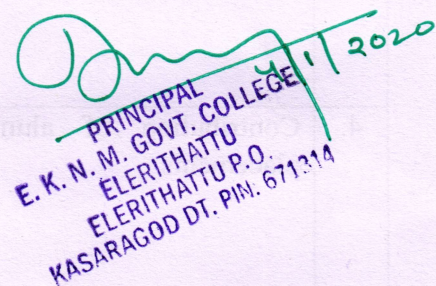 4/1/2020
PRINCIPAL
E. K. N. M. GOVT. COLLEGE
ELERITHATTU
ELERITHATTU P.O.
KASARAGOD DT. PIN: 671314